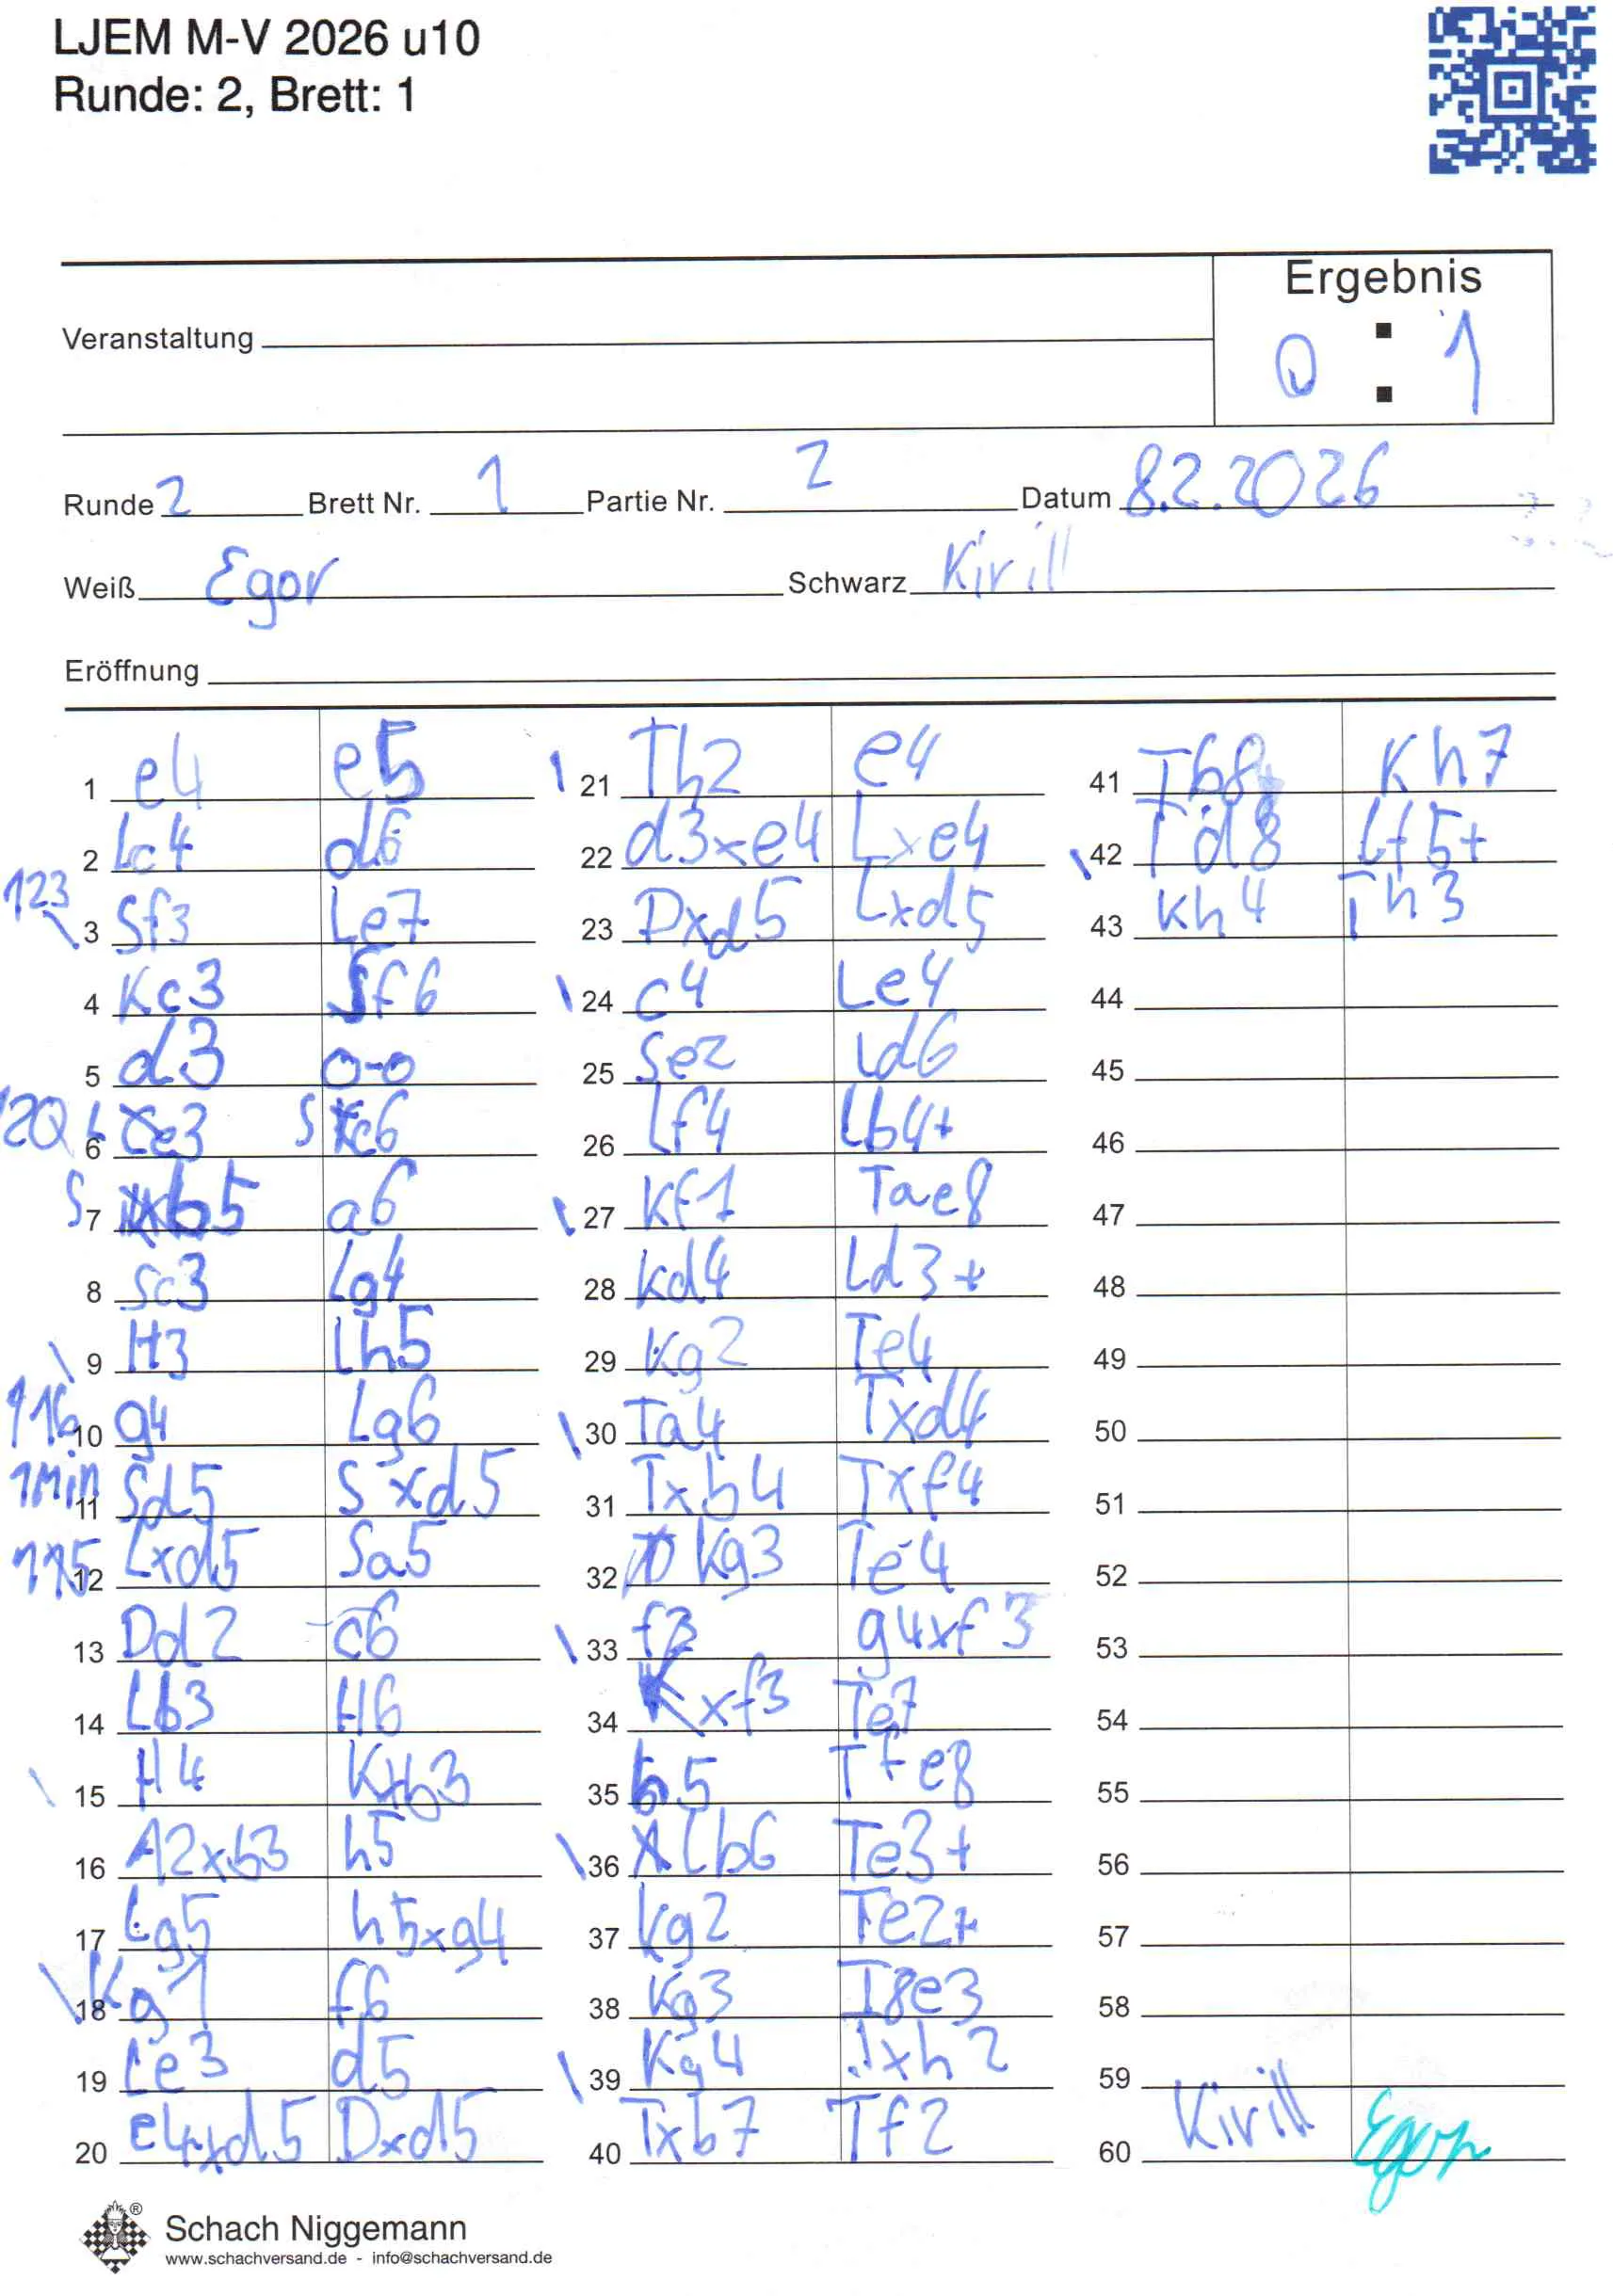 LJEM M-V 2026 u10
Runde: 2, Brett: 1
Ergebnis
0 : 1
Veranstaltung
Runde 2 Brett Nr. 1 Partie Nr. 2 Datum 8.2.2026
Weiß Egor Schwarz Kirill
Eröffnung
1 e4 e5
2 Lc4 d6
123
3 Sf3 Le7
4 Kc3 Sf6
5 d3 0-0
120
6 Le3 Sc6
7 Sb5 a6
8 Sc3 Lg4
9 H3 Lh5
116
10 g4 Lg6
1Min
11 Sd5 Sxd5
115
12 Lxd5 Sa5
13 Dd2 c6
14 Lb3 H6
15 H4 Kxb3
16 A2xb3 h5
17 Lg5 h5xg4
18 Kg1 f6
19 Le3 d5
20 e4xd5 Dxd5
21 Th2 e4
22 d3xe4 Lxe4
23 Dxd5 Lxd5
24 c4 Le4
25 Se2 Ld6
26 Lf4 Lb4+
27 Kf1 Tae8
28 Kd4 Ld3+
29 Kg2 Te4
30 Ta4 Txd4
31 Txb4 Txf4
32 Kg3 Te4
33 f3 g4xf3
34 Kxf3 Te7
35 b5 Tfe8
36 Lb6 Te3+
37 Kg2 Te2+
38 Kg3 T8e3
39 Kg4 Txh2
40 Txb7 Tf2
41 Tb8+ Kh7
42 Td8 Lf5+
43 Kh4 Th3
44
45
46
47
48
49
50
51
52
53
54
55
56
57
58
59
60 Kirill Egor
Schach Niggemann ®
www.schachversand.de - info@schachversand.de